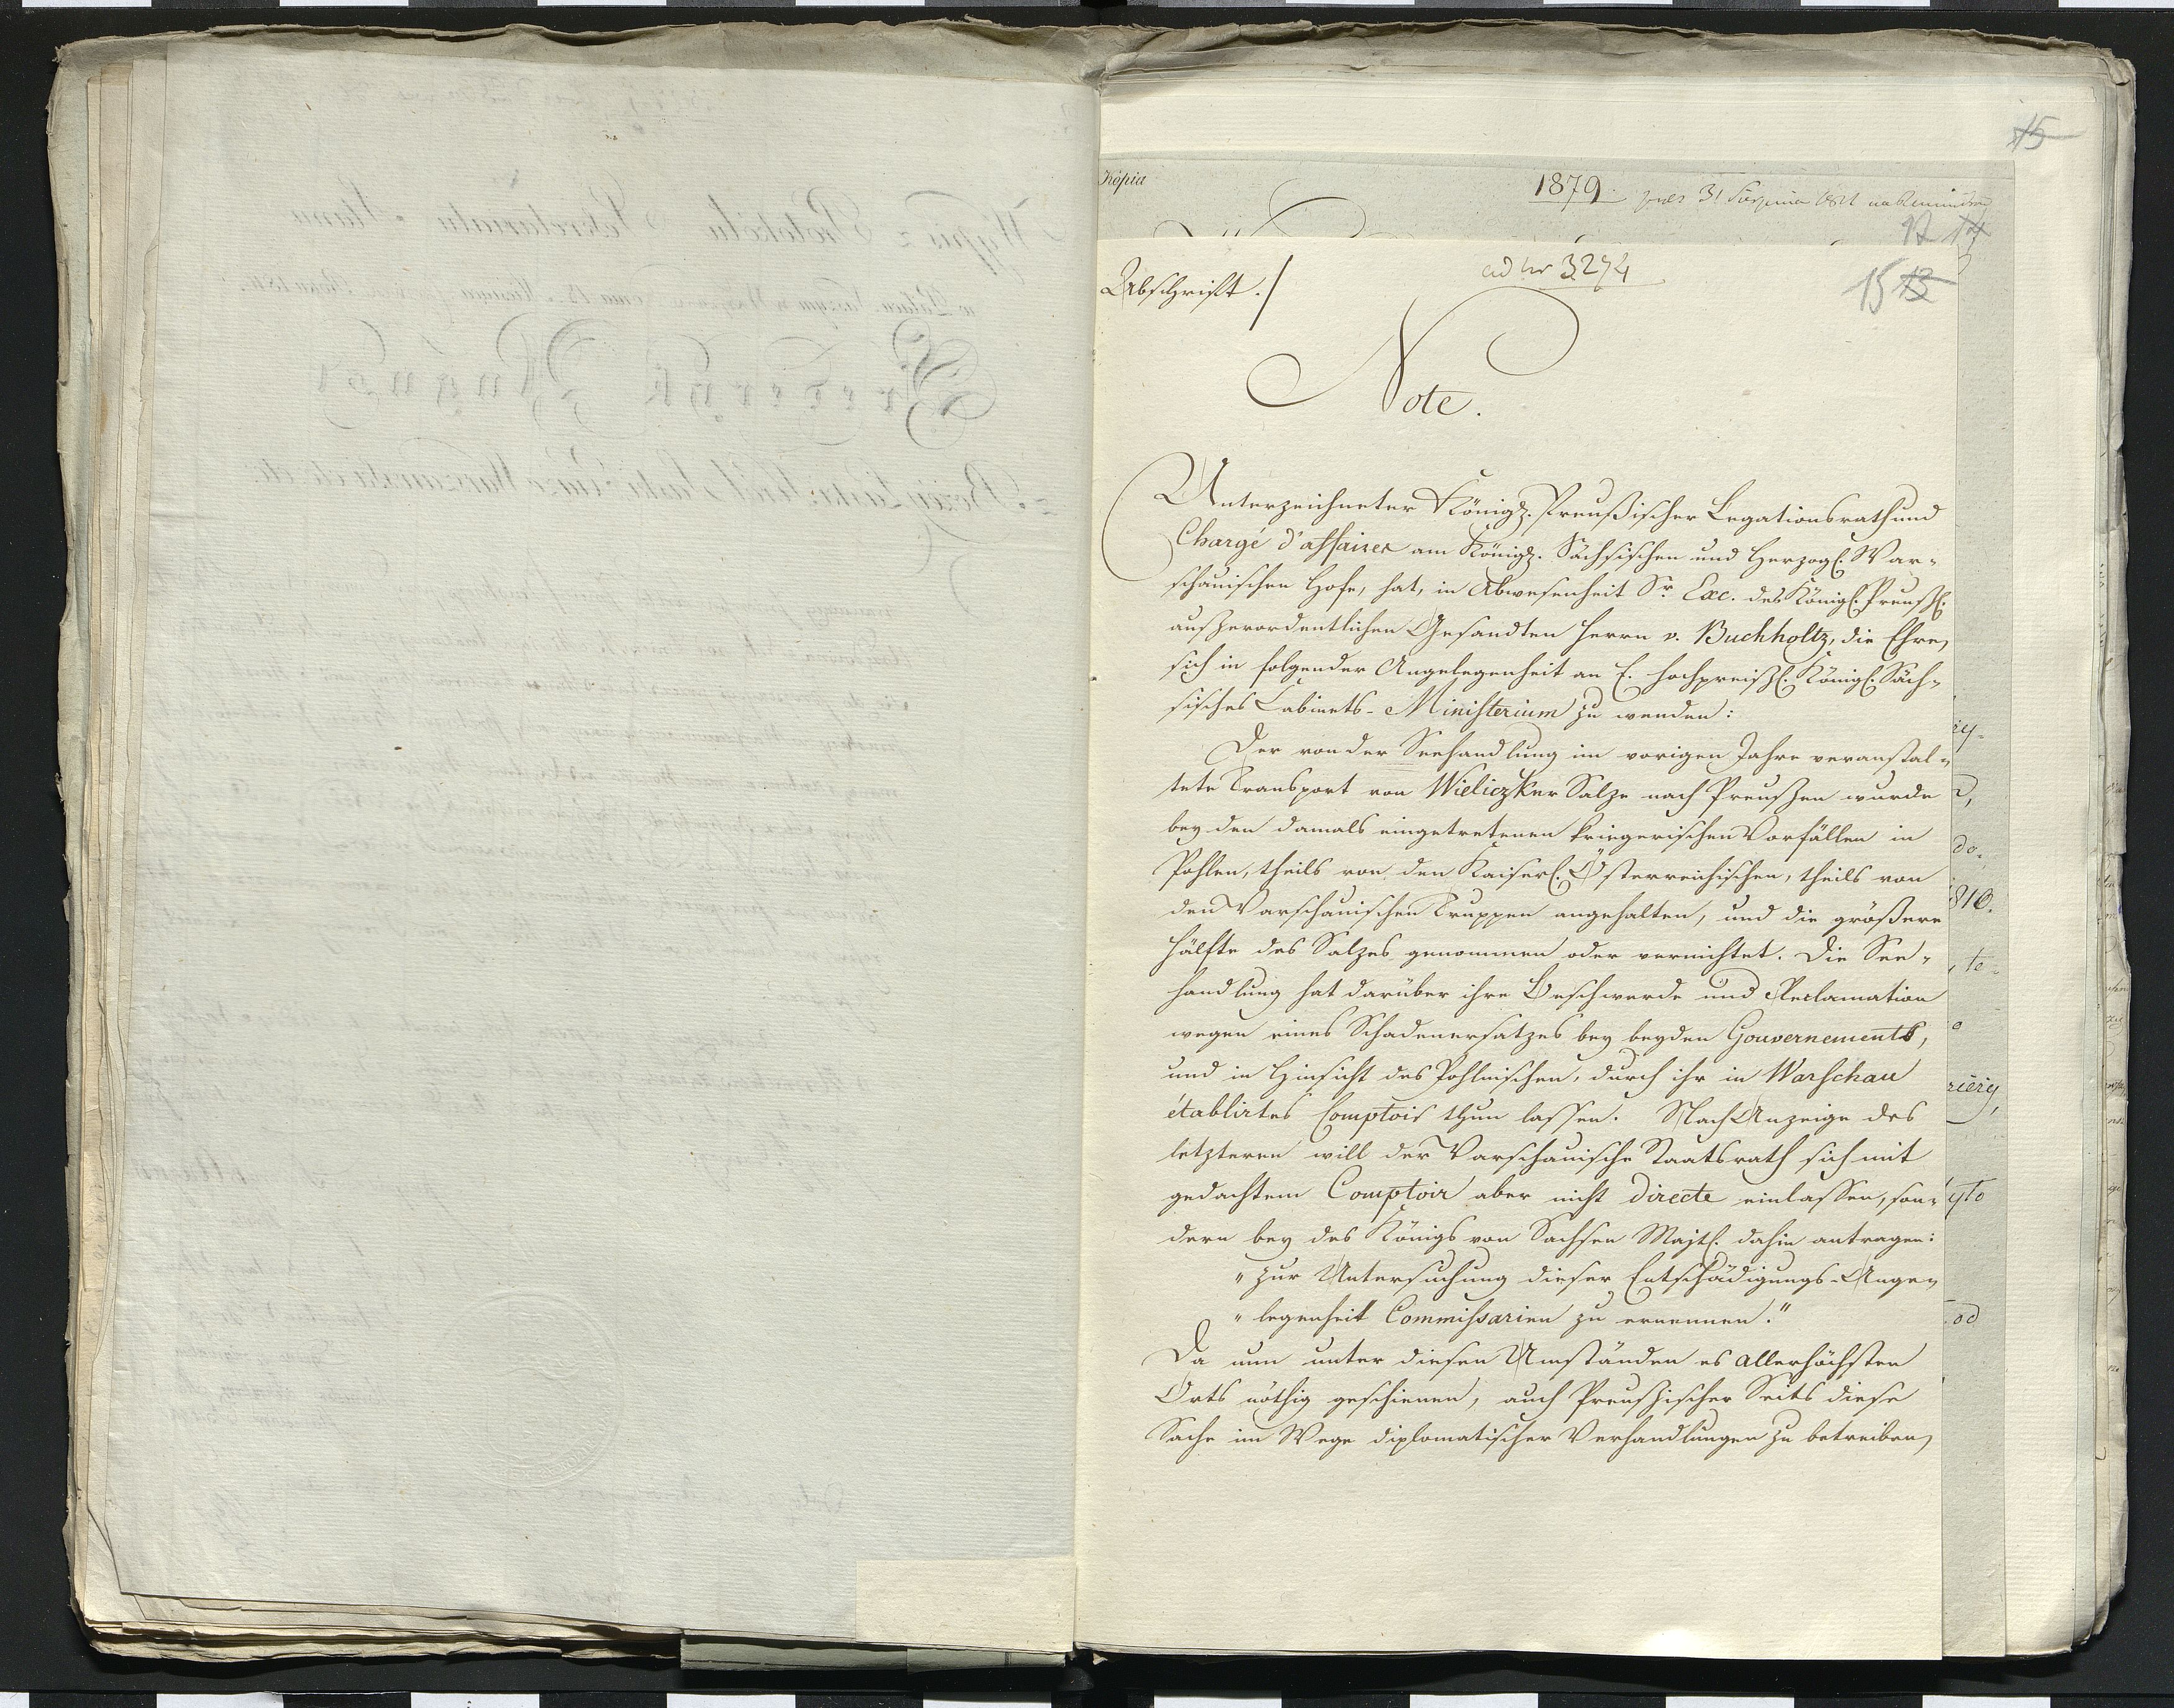 15
Kópia
1879.
praes 31 Sierpnia
12 14
ad nr 3274
Abschrift./
15 13
Note.
Unterzeichneter Königl. Preußischer Legationsrath und
Chargé d'affaires am Königl. Sächsischen und Herzogl. War-
schauischen Hofe, hat, in Abwesenheit Sr. Exc. des Königl. Preußl.
außerordentlichen Gesandten Herrn v. Buchholtz, die Ehre,
sich in folgender Angelegenheit an E. hochpreißl. Königl. Säch-
sisches Cabinets-Ministerium zu wenden:
Der von der Seehandlung im vorigen Jahre veranstal-
tete Transport von Wieliczker Salze nach Preußen wurde
bey den damals eingetretenen kriegerischen Vorfällen in
Pohlen, theils von den Kaiserl. Österreichischen, theils von
den Warschauischen Truppen angehalten, und die größere
Hälfte des Salzes genommen oder vernichtet. Die See-
handlung hat darüber ihre Beschwerde und Reclamation
wegen eines Schadenersatzes bey beyden Gouvernements,
und in Hinsicht des Pohlnischen, durch ihr in Warschau
établirtes Comptoir thun lassen. Nach Anzeige des
letzteren will der Warschauische Staatsrath sich mit
gedachtem Comptoir aber nicht directe einlassen, son-
dern bey des Königs von Sachsen Majtl. dahin antragen:
"zur Untersuchung dieser Entschädigungs-Ange-
"legenheit Commissarien zu ernennen."
Da nun unter diesen Umständen es allerhöchsten
Orts nöthig geschienen, auch Preußischer Seits diese
Sache im Wege diplomatischer Verhandlungen zu betreiben,
do.
810.
te-
riery,
yto
od